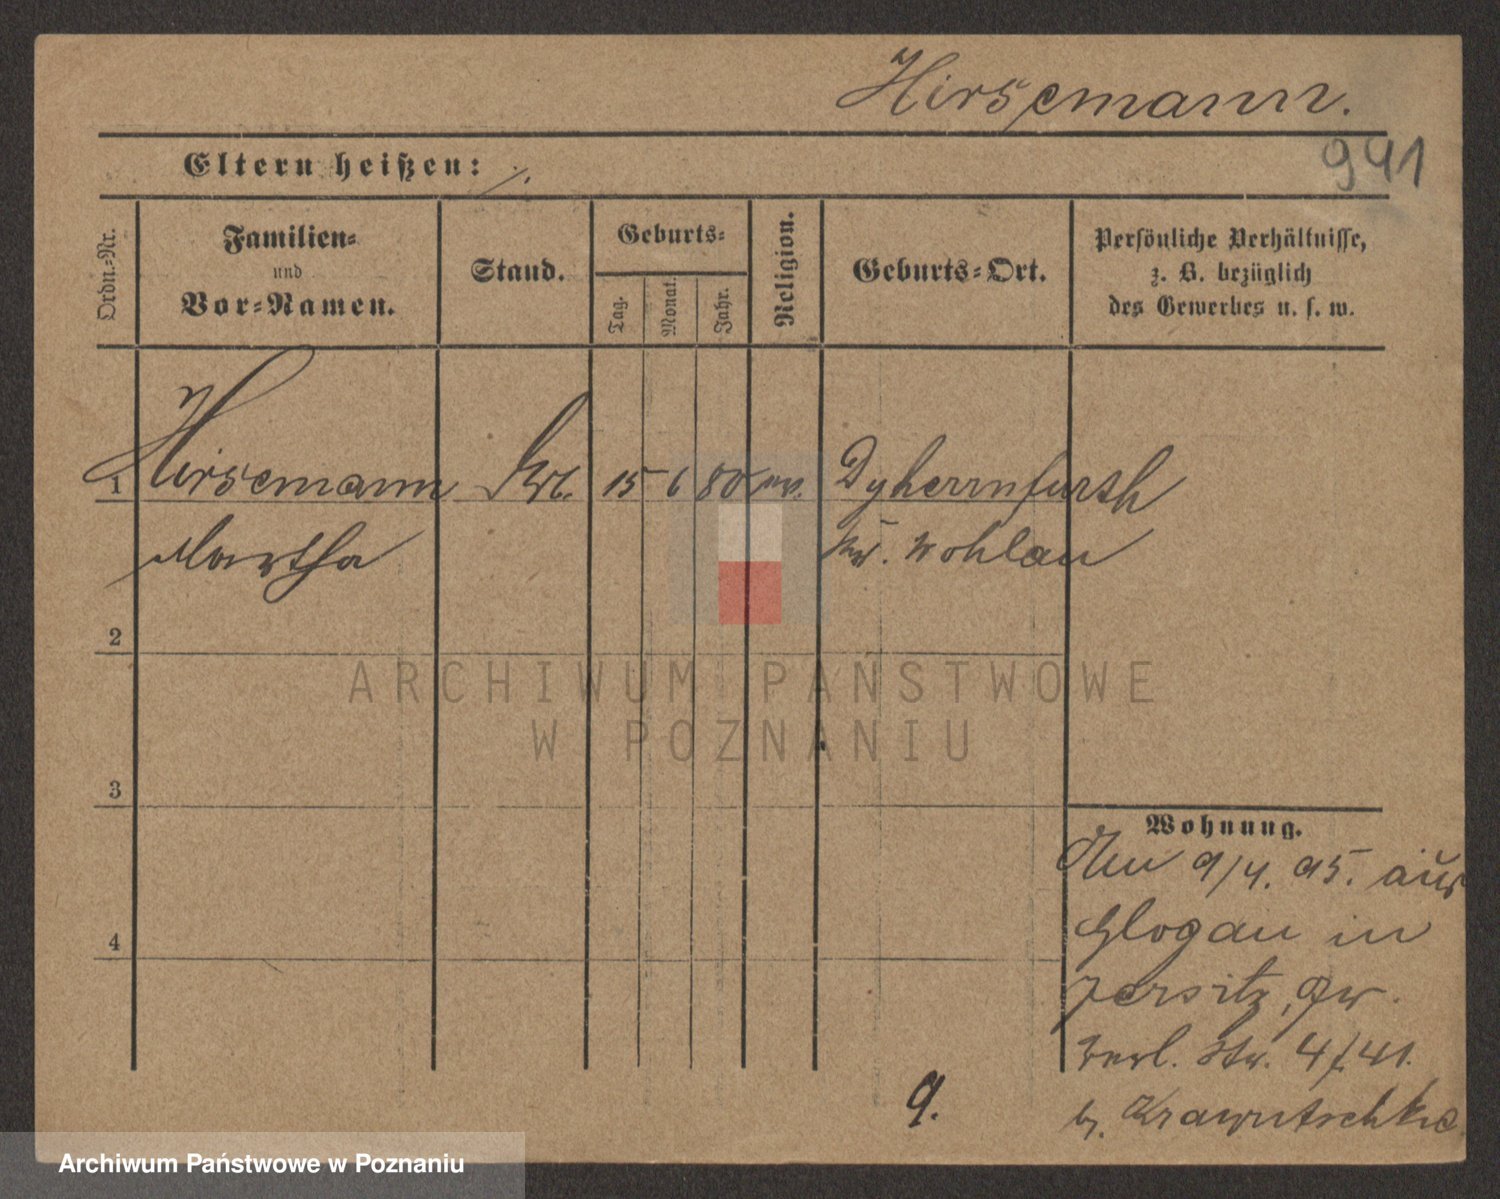 Hirsemann.
991
Eltern heißen: ./.
Ordn.-Nr.
Familien-
und
Vor-Namen.
Stand.
Geburts-
Tag.
Monat.
Jahr.
Religion.
Geburts-Ort.
Persönliche Verhältnisse,
z. B. bezüglich
des Gewerbes u. s. w.
1 Hirsemann 15 6 80 ev. Dyhernfurth
Martha Kr. Wohlau
2
3
4
Wohnung.
9/4. 95. aus
Glogau in
Jersitz, Gr.
Berl. Str. 4/41.
b. Krawutschke
9.
ARCHIWUM PAŃSTWOWE
W POZNANIU
Archiwum Państwowe w Poznaniu